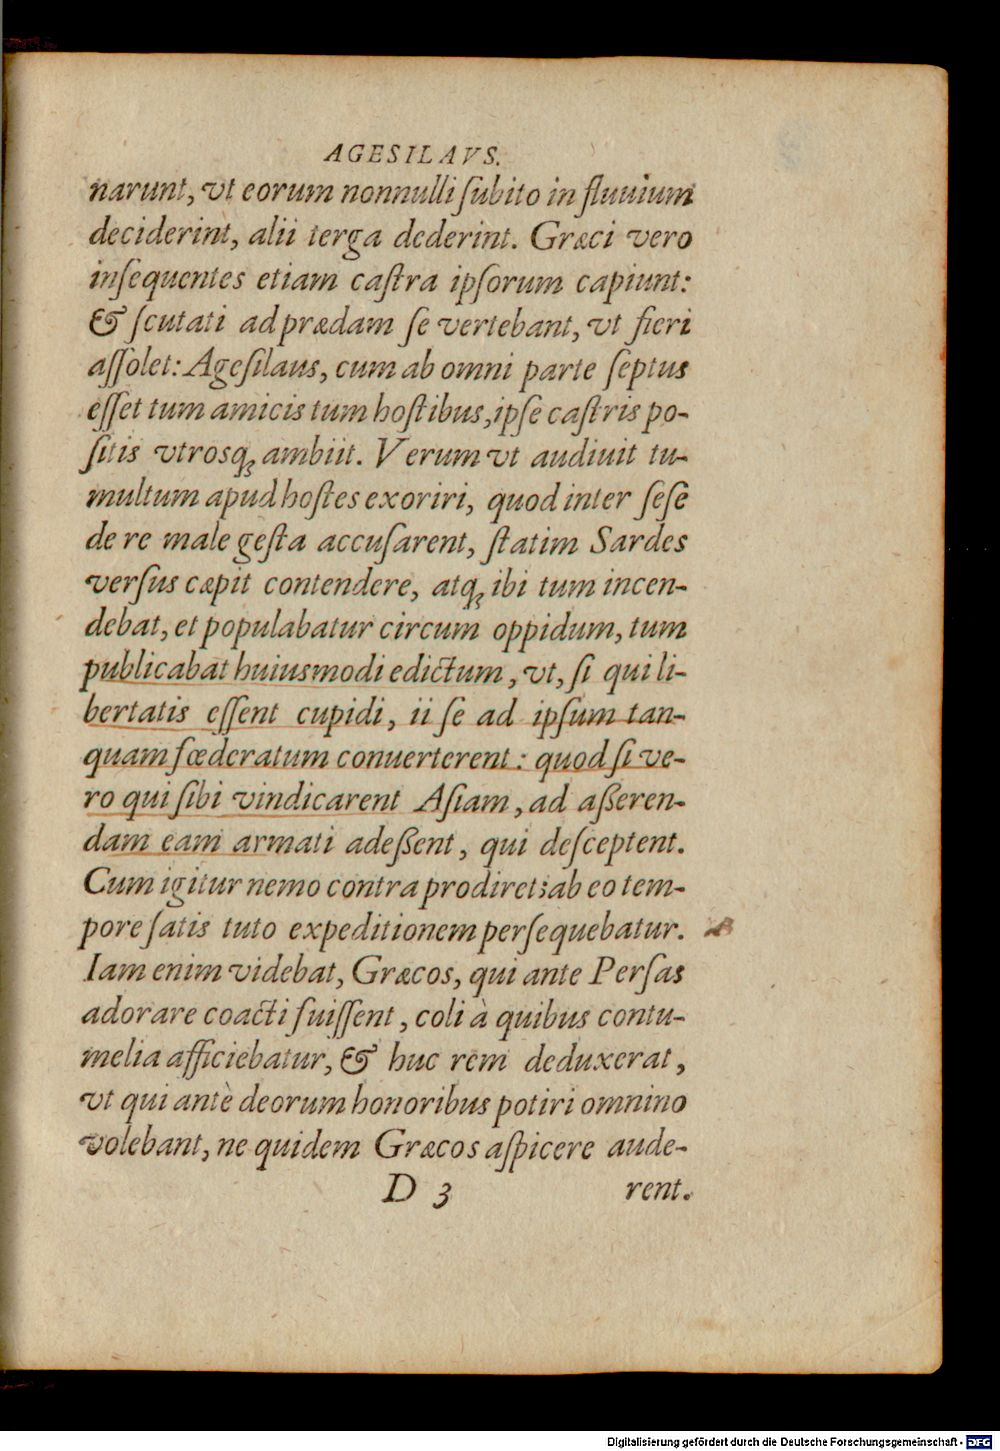 AGESILAVS.
narunt, vt eorum nonnulli ſubito in fluuium
deciderint, alii terga dederint. Græci vero
inſequentes etiam caſtra ipſorum capiunt:
& ſcutati ad prædam ſe vertebant, vt fieri
aſſolet: Ageſilaus, cum ab omni parte ſeptus
eſſet tum amicis tum hoſtibus, ipſe caſtris po-
ſitis vtrosq; ambiit. Verum vt audiuit tu-
multum apud hoſtes exoriri, quod inter ſeſe
de re male geſta accuſarent, ſtatim Sardes
verſus cæpit contendere, atq; ibi tum incen-
debat, et populabatur circum oppidum, tum
publicabat huiusmodi edictum, vt, ſi qui li-
bertatis eſſent cupidi, ii ſe ad ipſum tan-
quam fœderatum conuerterent: quod ſi ve-
ro qui ſibi vindicarent Aſiam, ad aßeren-
dam eam armati adeßent, qui deſceptent.
Cum igitur nemo contra prodiret; ab eo tem-
pore ſatis tuto expeditionem perſequebatur.
Iam enim videbat, Græcos, qui ante Perſas
adorare coacti fuiſſent, coli à quibus contu-
melia afficiebatur, & huc rem deduxerat,
vt qui antè deorum honoribus potiri omnino
volebant, ne quidem Græcos aſpicere aude-
D 3 rent.
Digitalisierung gefördert durch die Deutsche Forschungsgemeinschaft - DFG